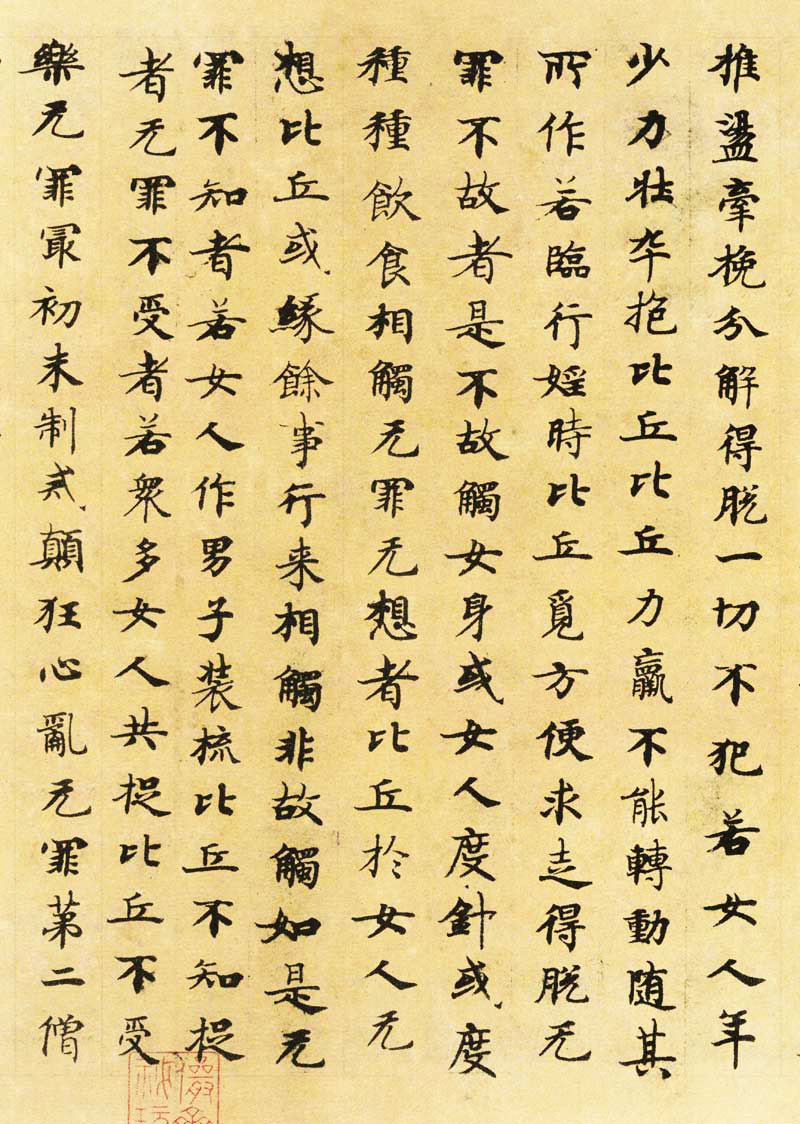 推盪牽挽分解得脫一切不犯若女人年
少力壮卒抱比丘比丘力羸不能轉動随其
所作若臨行婬時比丘覓方便求走得脫无
罪不故者是不故觸女身或女人度針或度
種種飲食相觸无罪无想者比丘於女人无
想比丘或緣餘事行来相觸非故觸如是无
罪不知者若女人作男子装梳比丘不知捉
者无罪不受者若衆多女人共捉比丘不受
樂无罪冣初未制戒顛狂心亂无罪第二僧